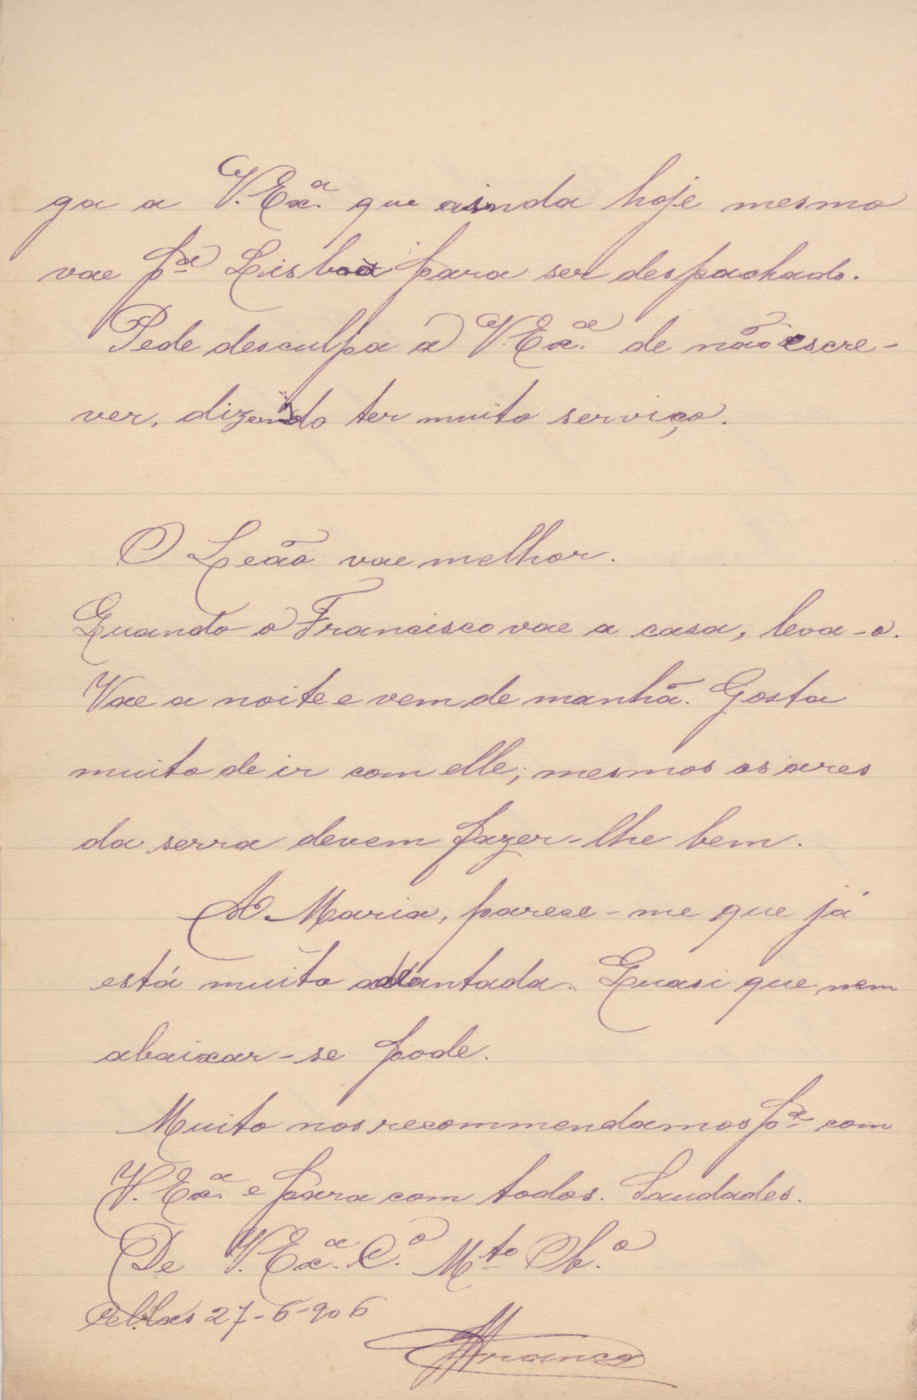 ga a V. Exª. que ainda hoje mesmo
vae pª Lisboa para ser despachado.
Pede desculpa a V. Exª. de não escre-
ver, dizendo ter muito serviço.
O Leão vae melhor.
Quando o Francisco vae a casa, leva-o.
Vae a noite e vem de manhã. Gosta
muito de ir com elle; mesmos os ares
da serra devem fazer-lhe bem.
A Maria, parece-me que já
está muito adiantada. Quasi que nem
abaixar-se pode.
Muito nos recommendamos pª com
V. Exª. e para com todos. Saudades.
De V. Exª. C.º Mto Ob.º
27-6-906
Franco